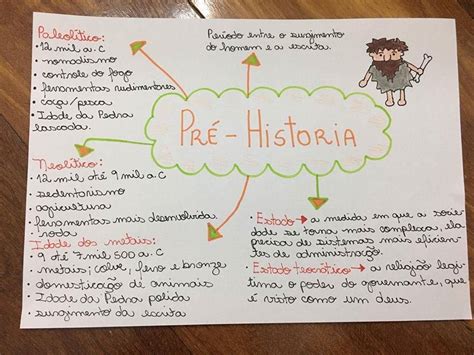 Paleolítico:
• 12 mil a.C
• nomadismo
• controle do fogo
• ferramentas rudimentares
• caça / pesca
• Idade da Pedra
Lascada.
Período entre o surgimento
do homem e a escrita.
PRÉ-HISTORIA
Neolítico:
• 12 mil até 9 mil a.C
• sedentarismo
• agricultura
• ferramentas mais desenvolvida.
• roda
Idade dos metais:
• 9 até 7 mil 500 a.C
• metais; cobre, ferro e bronze
• domesticação de animais
• Idade da Pedra polida
• surgimento da escrita
• Estado → a medida em que a socie
dade se torna mais complexa, ela
precisa de sistemas mais eficien-
tes de administração.
• Estado teocrático → a religião legi
tima o poder do governante, que
é visto como um deus.